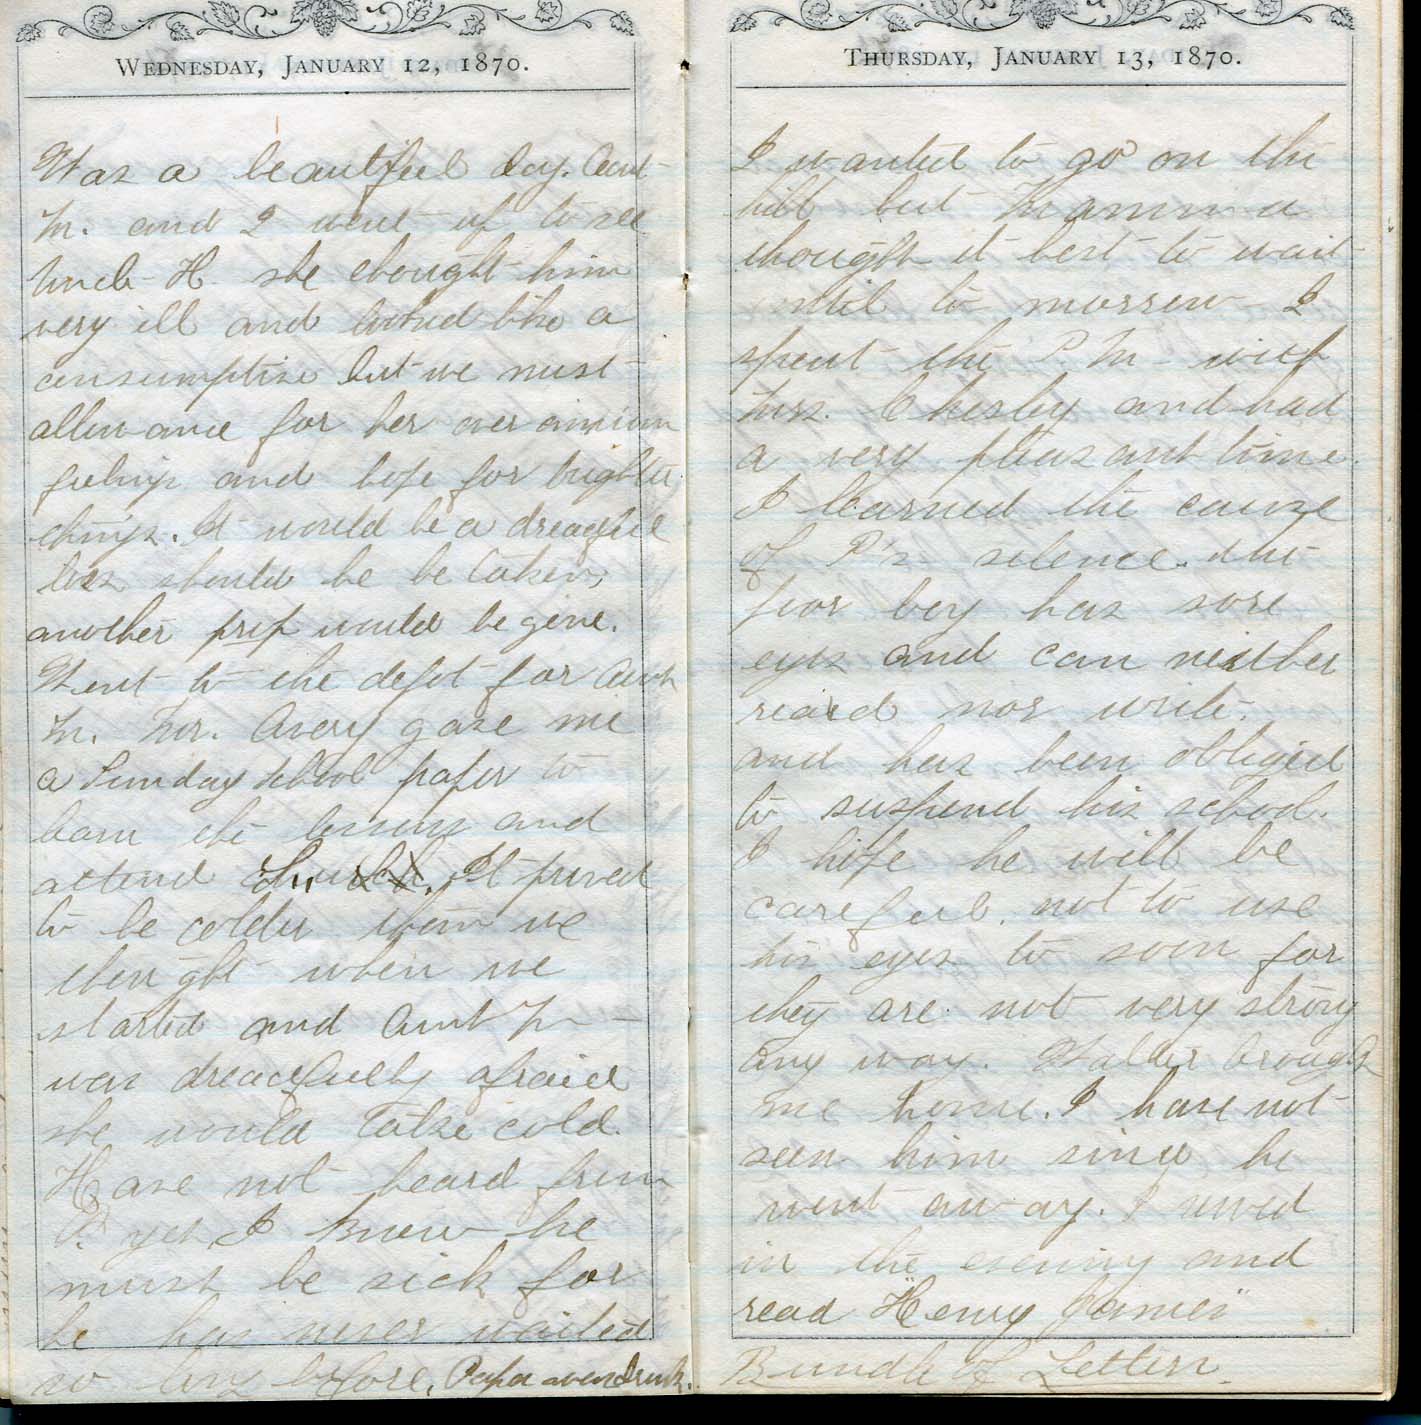 WEDNESDAY, JANUARY 12, 1870.
Was a beautiful day. Aunt
M. and I went up to see
Uncle H. she thought him
very ill and looked like a
consumptive but we must
allowance for her over anxious
feelings and hope for brighter
things. It would be a dreadful
loss should he be taken,
another prop would be gone.
Went to the depot for Aunt
M. Mr. Avery gave me
a Sunday School paper to
learn the lessons and
attend Church. It proved
to be colder than we
thought when we
started and Aunt M
was dreadfully afraid
she would take cold.
Have not heard from
P. yet I know he
must be sick for
he has never waited
so long before. Papa
THURSDAY, JANUARY 13, 1870.
I wanted to go on the
hill but Mamma
thought it best to wait
until to morrow I
spent the P.M. with
Mrs. Chesley and had
a very pleasant time.
I learned the cause
of P's silence. the
poor boy has sore
eyes and can neither
read nor write.
and has been obliged
to suspend his school.
I hope he will be
careful not to use
his eyes to soon for
they are not very strong
any way. Walter brought
me home. I have not
seen him since he
went away. I sewed
in the evening and
read "Henry James"
Bundle of Letters.